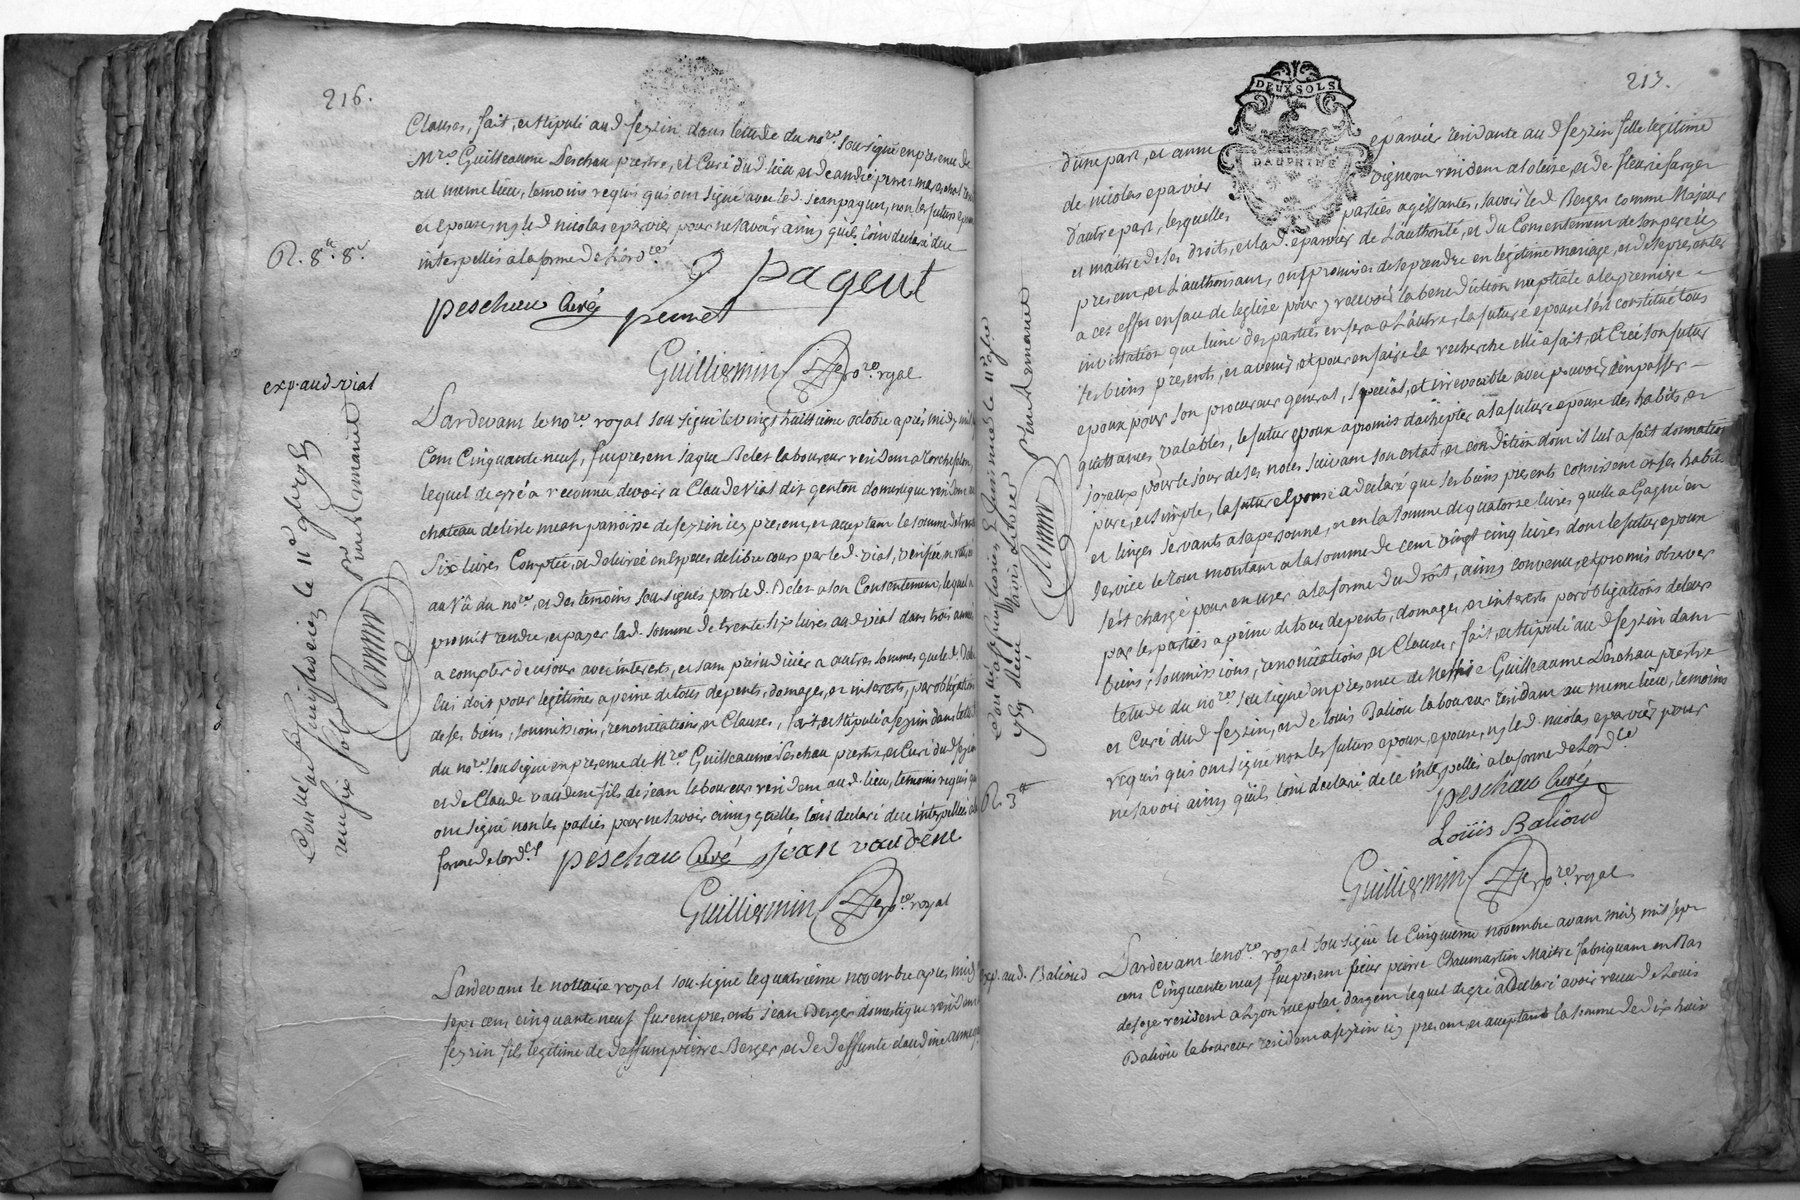 216.
Clauses, fait, et stipulé aud feyzin dans letude du no.re sousigné en presence de
M.re Guilleaume Peschau prestre, et Curé dud lieu et de andré perret marechal
au meme lieu, temoins requis qui ont signé avec led jean paquet, non les futurs epoux
et epouse, ny led nicolas eparvier pour ne savoir ainsy quils lont declaré de ce
interpellés a la forme de lord.ce
R. 8.# 8.s
J pagent
peschau Curé perret
Guilliermin no.re royal
exp. aud. vial
Pardevant le no.re royal sousigné le vingt huitieme octobre apres midy mil
Cent Cinquante neuf, fut present jaque Belet laboureur resident a
lequel de gré a reconnu devoir a Claude Vial dit genton domestique resident au
chateau de lisle mean parroisse de feyzin icy present, et acceptant la somme de trente
Six livres Comptée, et delivrée en Especes de libre cours par led. vial, verifiée, et retirée
au vû du no.re, et des temoins sousignés par led. Belet a son Contentement, lequel a
promit rendre, et payer lad. somme de trente six livres aud vial dans trois années
a compter de cejour avec interets, et sans prejudicier a autres sommes que led Belet
lui doit pour legitimes a peine de tous depents, domages, et interests, par obligation
de ses biens, soumissions, renonciations, et Clauses, fait, et stipulé a feyzin dans letude
du no.re sousigné en presence de M.re Guilleaume Peschau prestre, et Curé dud feyzin
et de Claude vaudene fils de jean laboureur resident aud. lieu, temoins requis qui
ont signé non les parties pour ne savoir ainsy quelles lont declaré de ce interpellées a la
forme de lord.ce
peschau Curé jean vaudene
Guilliermin no.re royal
Pardevant le nottaire royal sousigné le quatrieme novembre apres midy
sept cent cinquante neuf furent presents jean Berger domestique resident
feyzin fils legitime de deffunt pierre Berger, et de deffunte claudine
217.
DEUX SOLS
DAUPHINE
d'une part, et anne eparvier residante aud feyzin fille legitime
de nicolas eparvier vigneron resident a solaize, et de fleurie farger
d'autre part, lesquelles parties agissantes, savoir led Berger comme Majeur
et maitre de ses droits, et lad. eparvier de Lauthorité, et du Consentement de son pere icy
present, et Lauthorisant, ont promis de se prendre en legitime mariage, et de se presenter
a ces effet en face de leglise pour y recevoir la benediction nuptiale a la premiere
invitation que lune des parties en fera a Lautre, la future epouse sest constitué tous
ses biens presents, et avenir, et pour en faire la recherche elle a fait, et Créé son futur
epoux pour son procureur general, special, et irrevocable avec pouvoir den passer
quittances valables, le futur epoux a promis d'achepter a la future epouse des habits, et
joyaux pour le jour de ses noles suivant son estat, et condition dont il lui a fait donnation
pure, et simple, la future epouse a declaré que ses biens presents consistent en ses habits
et linges servants a la personne, et en la somme de quatorze livres quelle a Gagné en
service le tout montant a la somme de cent vingt cinq livres dont le futur epoux
sest chargé pour en user a la forme du droit, ainsy convenu, et promis observer
par les parties a peine de tous depents, domages, et interests par obligations de leurs
biens, soumissions, renonciations, et Clauses, fait, et stipulé aud feyzin dans
letude du no.re sousigné en presence de Messire Guilleaume Peschau prestre
et Curé dud feyzin, et de louis Baliou laboureur residant au meme lieu, temoins
requis qui ont signé non les futurs epoux, epouse, ny led nicolas eparvier pour
ne savoir ainsy quils lont declaré de ce interpellés a la forme de Lord.ce
R. 3.#
peschau Curé
Loüis Balioud
Guilliermin no.re royal
exp. aud. Balioud
Pardevant le no.re royal sousigné le Cinquieme novembre avant midy mil sept
cent Cinquante neuf fut present sieur pierre Chaumartin Maitre fabriquant en Bas
de soye resident a Lyon rue plat dargent lequel de gré a declaré avoir receu de Louis
Baliou laboureur resident a feyzin icy present, et acceptant la somme de dix huit